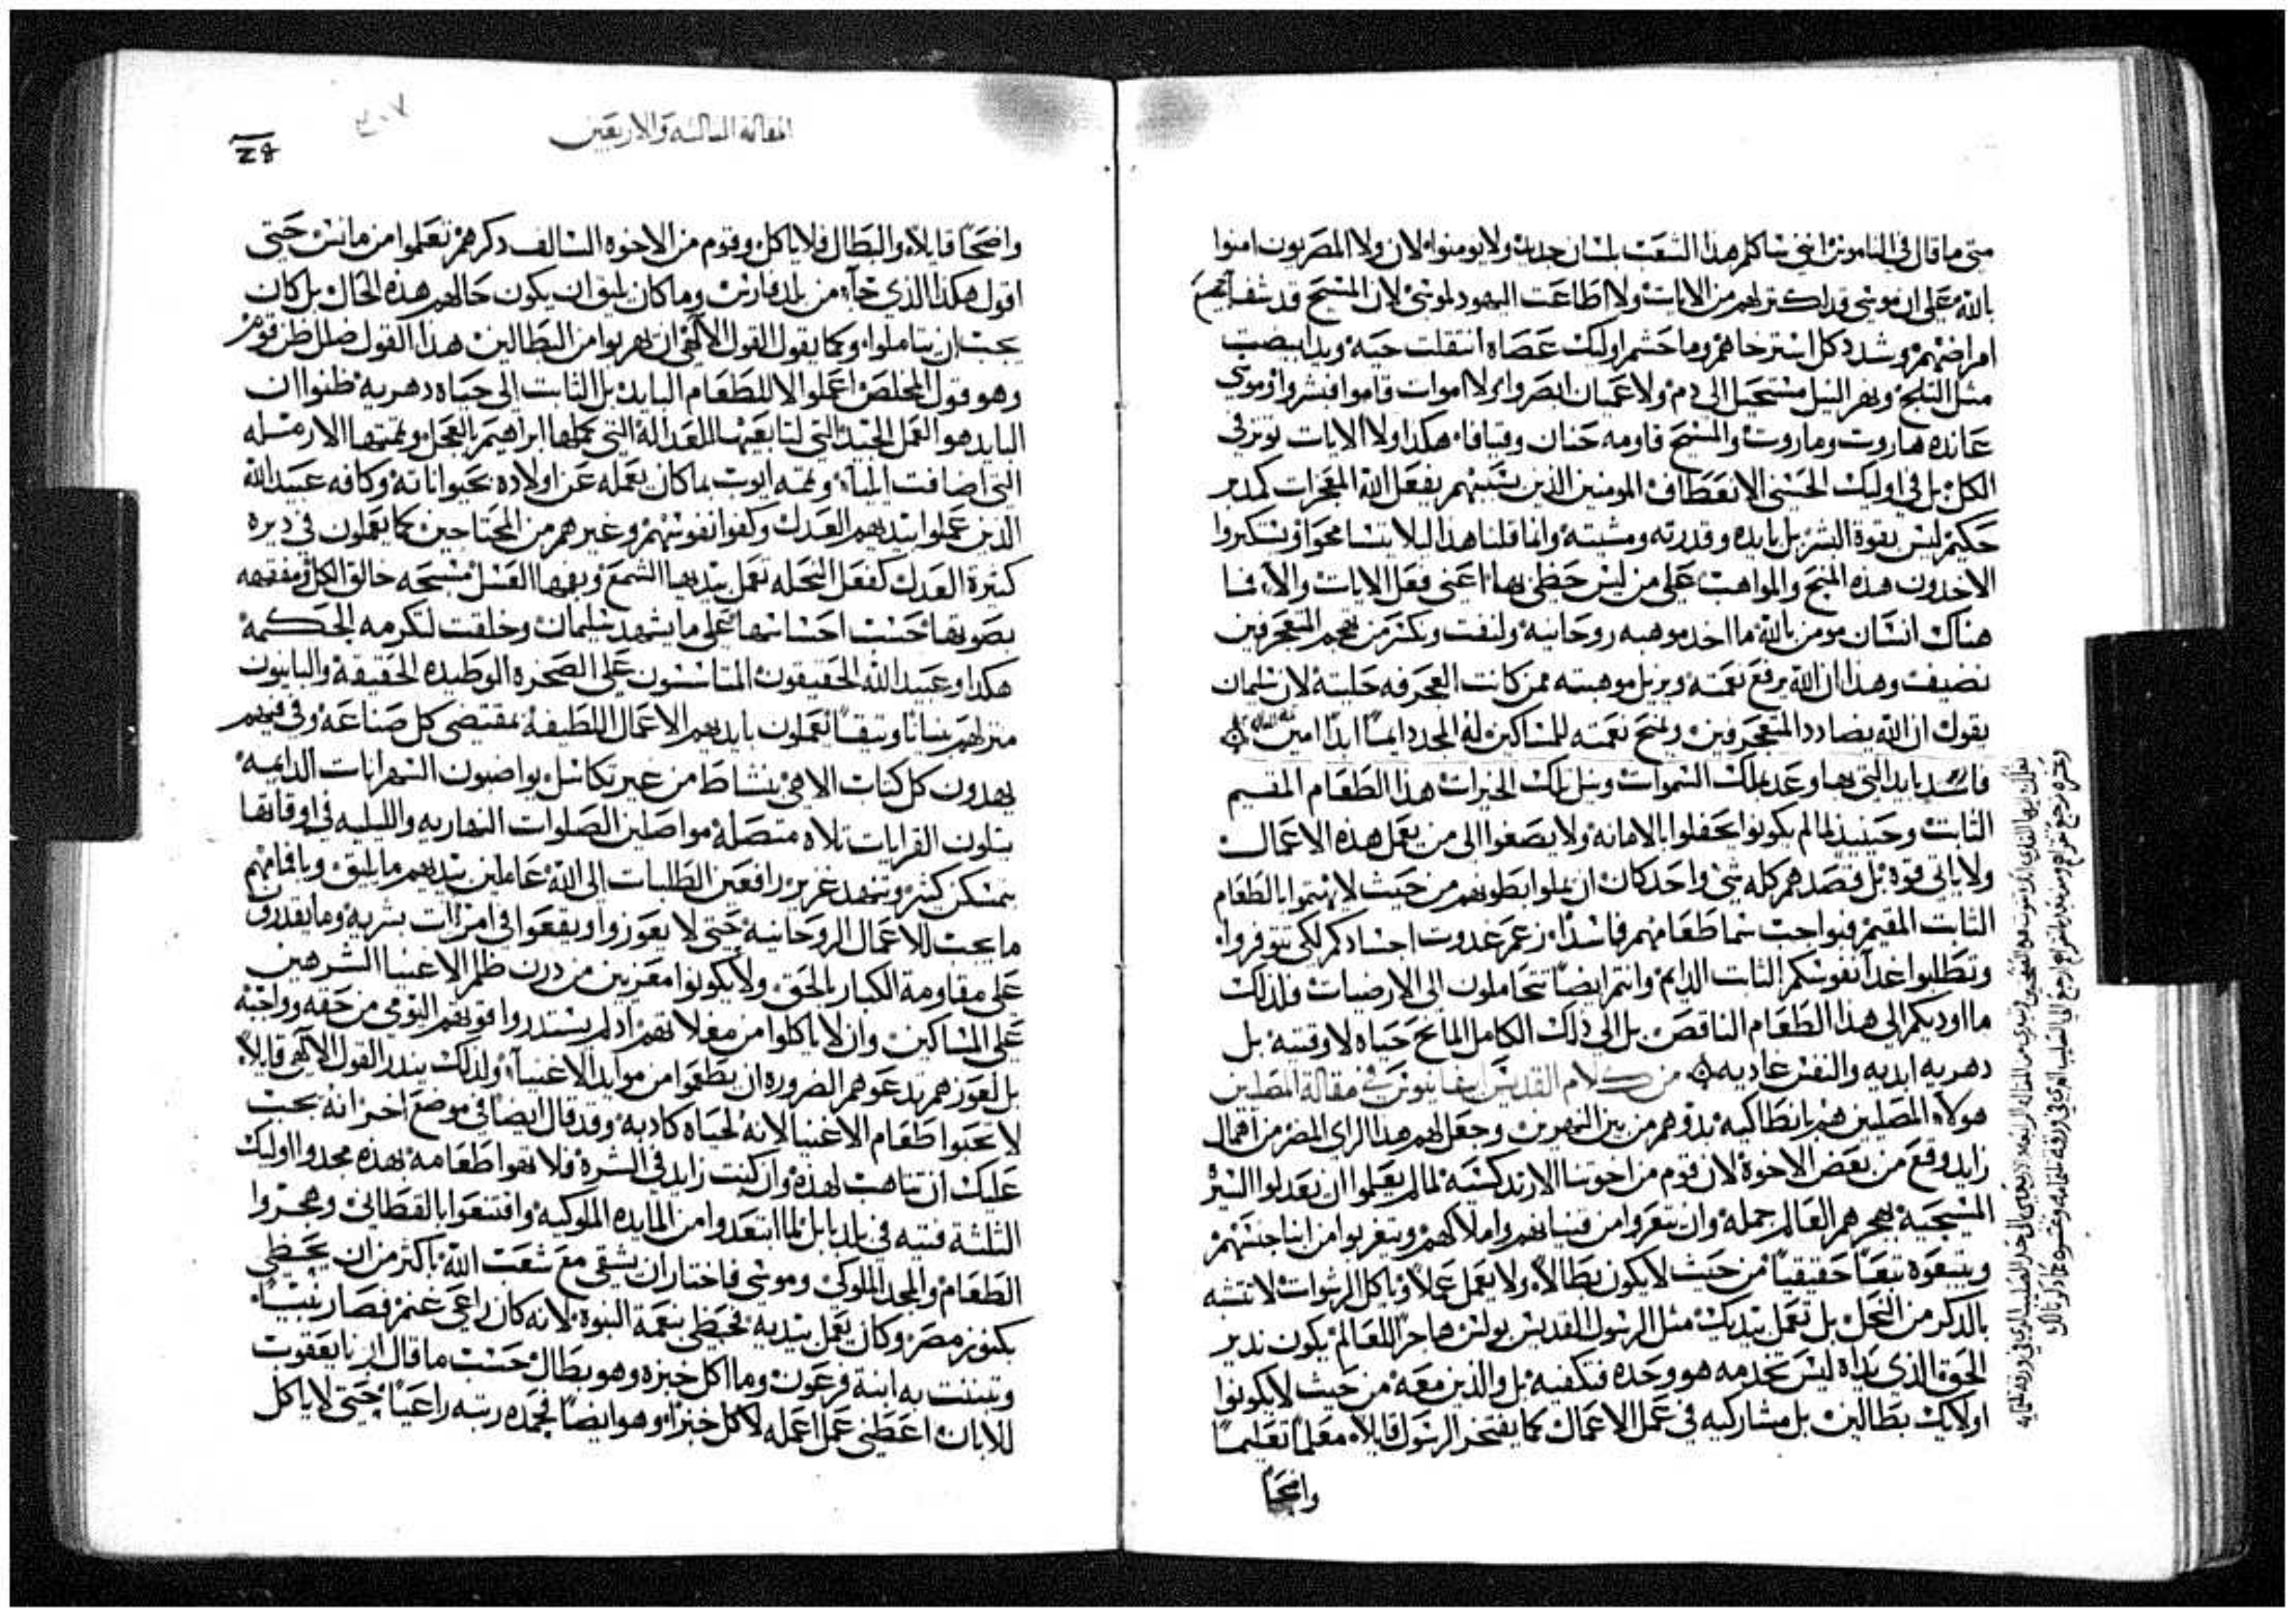 متى ما قال في الناموس انني ساكلم هذا الشعب بلسان جديد ولا يومنوا لان ولا المصريون امنوا
بالله على ان موسى قد اكثر لهم من الايات ولا اطاعت اليهود لموسى لان المسيح قد شفا لهم
امراضهم وشدد كل استرخاهم وما حشم اوليك عصاه انتقلت حيه ويدا بيضت
مثل الثلج ونهر النيل مستحيل الى دم ولا عميان ابصروا ولا اموات قاموا فنشروا وموسى
عانده هاروت وماروت والمسيح قاومه حنان وقيافا هكذا ولا الايات توثر في
الكل بل في اوليك الحسني الانعطاف المومنين الذين بسببهم يفعل الله المعجزات كمدبر
حكيم ليس بقوة البشر بل بايده وقدرته ومشيته وانما قلنا هذا ليلا يتشامخوا ويتكبروا
الاخدون هذه المنح والمواهب على من ليس حظي بها اعني فعل الايات والا فما
هناك انسان مومن بالله ما اخد موهبه روحانيه ولنفت ونكثر من هجم المتعجرفين
نضيف وهذا ان الله يرفع نعمته ويزيل موهبته ممن كانت العجرفه حليته لان سليمان
يقول ان الله يضادد المتعجرفين ويمنح نعمته للمساكين له المجد دايما ابدا امين
فاسد بايد التي بها وعد بملك السموات ونيل تلك الخيرات هذا الطعام المقيم
الثابت وحينيذ لما لم يكونوا يحفلوا بالامانه ولا يصغوا الى من يعمل هذه الاعمال
ولا باي قوة بل قصدهم كله شي واحد كان ان يملوا بطونهم من حيث لا يهتموا بالطعام
الثابت المقيم فبواجب سما طعامهم فاسدا زعم غدوت اجسادكم لكي تتوفروا
وتطلبوا غدا نفوسكم الثابت الدايم وانتم ايضا تتحاملون الى الارضيات ولذلك
ما اوديكم الى هذا الطعام الناقص بل الى ذلك الكامل المانح حياه لا وقتيه بل
دهريه ابديه والنفس عاديه من كلام القديس ابيفانيوس في مقالة المصلين
هولاء المصلين هم بانطاكيه بدوهم من بين النهرين وجعل لهم هذا الراي المضر من اهمال
زايد وقع من بعض الاخوة لان قوم من اخوتنا الارتدكسيه لما لم يعلموا ان يعدلوا السير
المسيحيه بهجرهم العالم جمله وان يتعروا من قنيانهم واملاكهم ويتغربوا من ابنا جنسهم
ويتبعوه تبعا حقيقيا من حيث لا يكون بطالا ولا يعمل عملا وياكل الرشوات لا تتشبه
بالذكر من النحل بل تعمل بيديك مثل الرسول القديس بولس هاجرا للعالم يكون نذير
الحق الذي يداه ليس تخدمه هو وحده فتكفيه بل والذين معه من حيث لا يكونوا
اولايك بطالين بل مشاركيه في عمل الاعمال كما يفتخر الرسول قايلا معلما تعليما
واضحا
المقالة الثالثه والاربعين
واضحا قايلا والبطال فلا ياكل وقوم من الاخوه السالف ذكرهم تعلموا من مانس حتى
اقول هكذا الذي جاء من بلد فارس وما كان يليق ان يكون حالهم هذه الحال بل كان
يجب ان يتاملوا وكما يقول القول الالهي ان اهربوا من البطالين هذا القول ضلل ظن قوم
وهو قول المخلص اعملوا لا للطعام البايد بل الثابت الى حياه دهريه ظنوا ان
البايد هو العمل الجيد التي لنا بعينها العداله التي عملها ابراهيم بالعجل وتممتها الارمله
التي اضافت ايليا وتممه ايوب بما كان يعمله عن اولاده بحيواناته وكافه عبيد الله
الذين عملوا بيديهم العدل وكفوا نفوسهم وغيرهم من المحتاجين كما يعملون في ديره
كثيرة العدل كفعل النحله تعمل بيديها الشمع وبفمها العسل مسبحه خالق الكل ومفقهه
بصوتها حسب احسانها على ما يشهد سليمان وخلقت لتكرمه الحكمه
هكذا وعبيد الله الحقيقون المتاسسون على الصخره الوطيده الحقيقة والبانيون
منزلهم بنيانا وثيقا يعملون بايديهم الاعمال اللطيفه بمقتضى كل صناعه وفي فمهم
يهدون كل كتاب الاهي بنشاط من غير تكاسل يواصبون السهرانات الدايمه
يتلون القرايات تلاه متصله مواصلين الصلوات النهاريه والليليه في اوقاتها
بتمسكن كثير وتنهد غزير رافعين الطلبات الى الله عاملين بيديهم ما يليق وبافمامهم
ما يجب للاعمال الروحانيه حتى لا يعوزوا ويقعوا في امرات بشريه وما يقدرون
على مقاومة الكبار بالحق ولا يكونوا معتزيين من درن ظلم الاغنيا الشرهين
على المساكين وان لا ياكلوا من مغلاتهم اذ لم يستدروا قوتهم اليومي من حقه وواجبه
بل لعوزهم تدعوهم الضروره ان يطعموا من موايد الاغنيا ولذلك ينذر القول الالهي قايلا
لا تحبوا طعام الاغنيا لانه لحياه كاذبه وقد قال ايضا في موضع اخر انه يجب
عليك ان تتاهب لهذه وان كنت زايد في الشره فلا تهوا طعامه بهذه مجدوا اوليك
الثلثه فتيه في بلد بابل لما ابتعدوا من المايده الملوكيه واقتنعوا بالقطاني وهجروا
الطعام والمجد الملوكي وموسى فاختار ان يشقى مع شعب الله باكثر من ان يحظى
بكنوز مصر وكان يعمل بيديه فحظي بنعمة النبوه لانه كان راعي غنم فصار نبيا
وتبننت به ابنة فرعون وما اكل خبزه وهو بطال حسب ما قال ابونا يعقوب
للابان اعطني عمل اعمله لاكل خبزا وهو ايضا فمجده ربه راعيا حتى لا ياكل